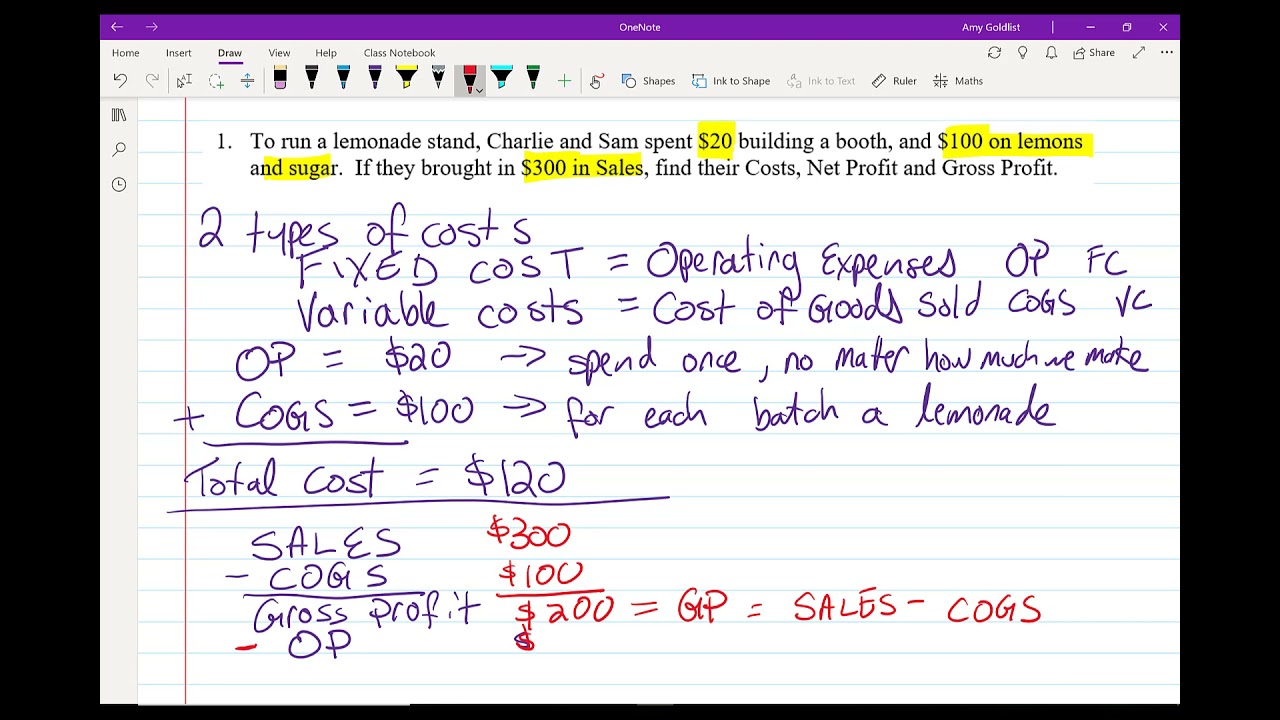 OneNote
Amy Goldlist
Home Insert Draw View Help Class Notebook
Share
Shapes Ink to Shape Ink to Text Ruler Maths
1. To run a lemonade stand, Charlie and Sam spent $20 building a booth, and $100 on lemons
and sugar. If they brought in $300 in Sales, find their Costs, Net Profit and Gross Profit.
2 types of costs
FIXED COST = Operating Expenses OP FC
Variable costs = Cost of Goods Sold COGS VC
OP = $20 → spend once, no mater how much we make
+ COGS = $100 → for each batch a lemonade
Total cost = $120
SALES $300
- COGS $100
Gross profit $200 = GP = SALES - COGS
- OP $